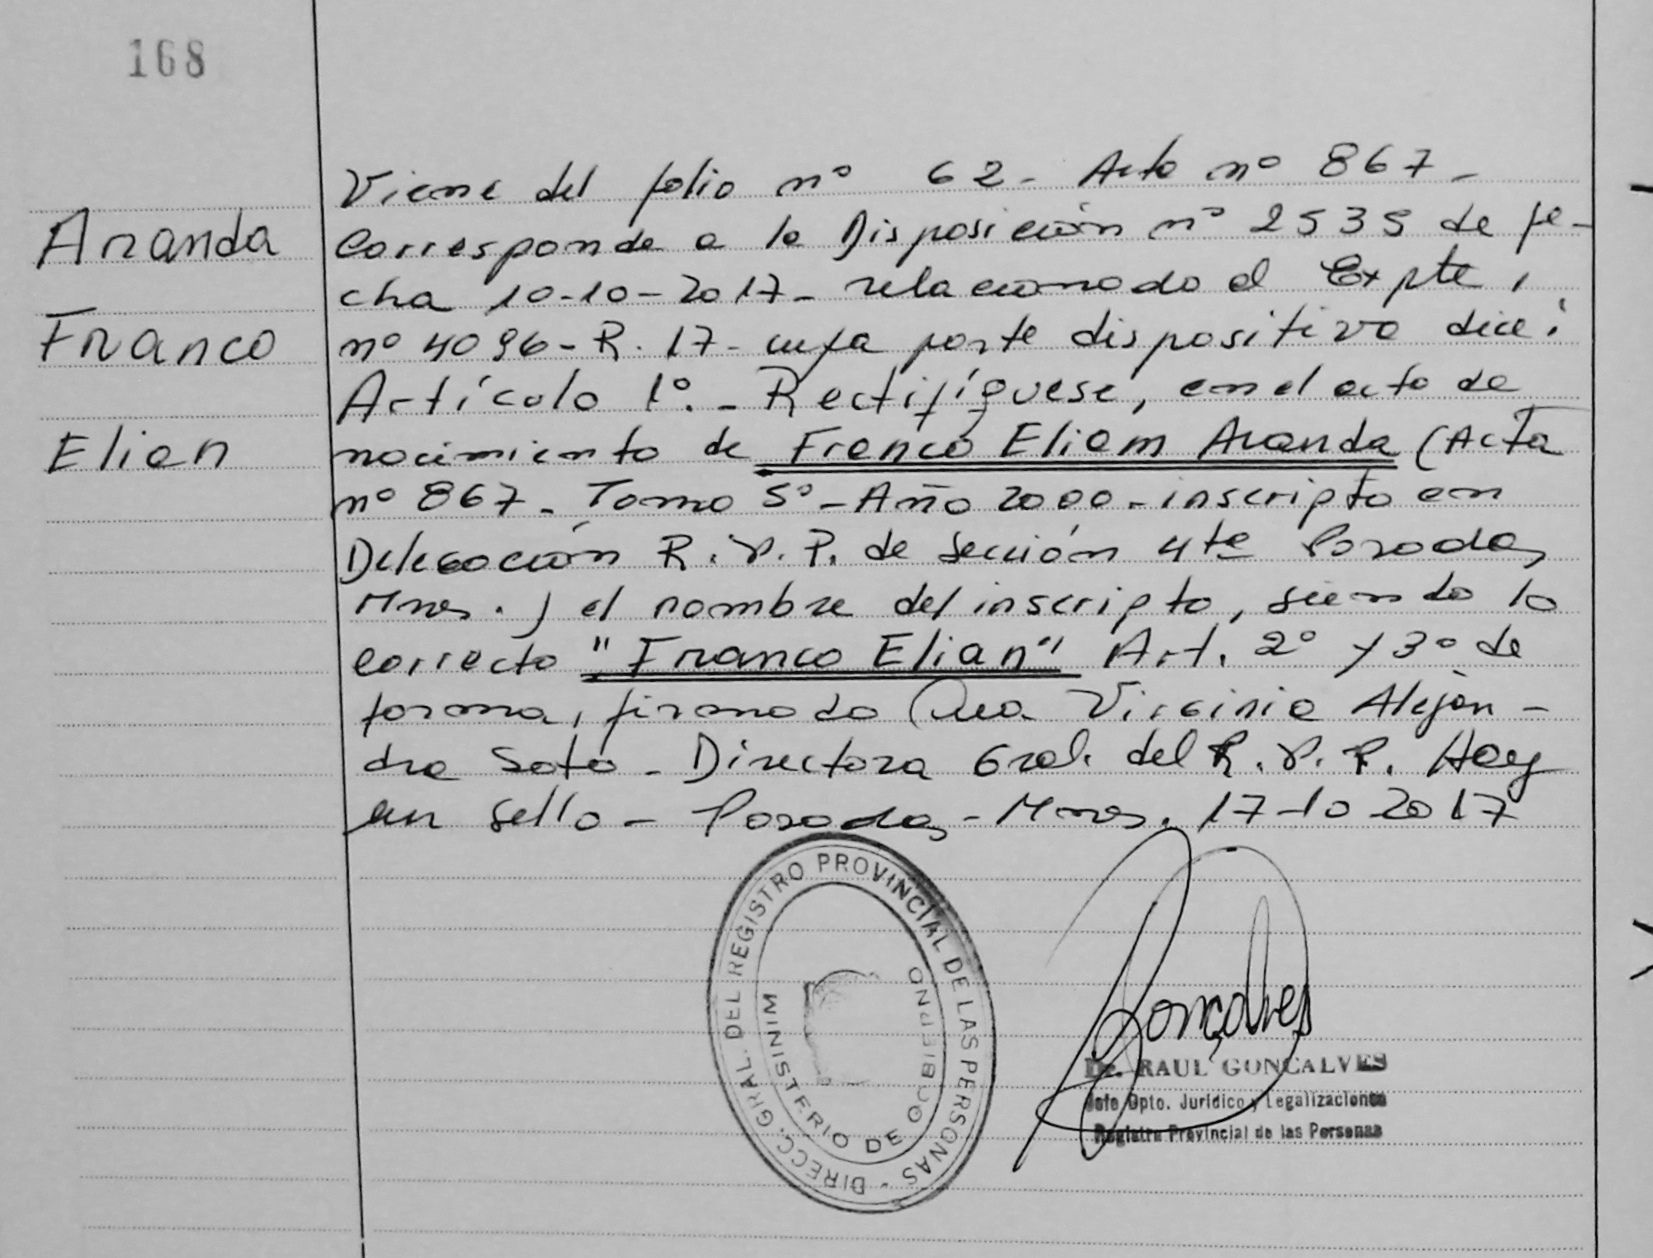 168
Aranda
Franco
Elian
Viene del folio nº 62 - Acta nº 867 -
Corresponde a la Disposición nº 2535 de fe-
cha 10-10-2017 - relacionado al Expte,
nº 4096 - R. 17 - cuya parte dispositiva dice:
Artículo 1º. - Rectifíquese, en el acta de
nacimiento de Franco Eliam Aranda (Acta
nº 867 - Tomo 5º - Año 2000 - inscripto en
Delegación R.P.P. de Sección 4ta Posadas,
Mnes.) el nombre del inscripto, siendo lo
correcto "Franco Elian" Art. 2º y 3º de
forma, firmado Virginia Alejan-
dra Soto - Directora Gral. del R.P.P. Hay
un sello - Posadas - Mnes. 17-10 2017
DIRECC. GRAL. DEL REGISTRO PROVINCIAL DE LAS PERSONAS -
MINISTERIO DE GOBIERNO
Gonçalves
Dr. RAUL GONCALVES
Jefe Dpto. Jurídico y Legalizaciones
Registro Provincial de las Personas